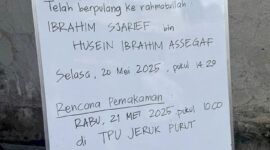 Telah berpulang ke rahmatullah
IBRAHIM SJARIEF bin
HUSEIN IBRAHIM ASSEGAF
Selasa, 20 Mei 2025, pukul 14.29
Rencana Pemakaman
RABU, 21 MEI 2025 pukul 10.00
di TPU JERUK PURUT